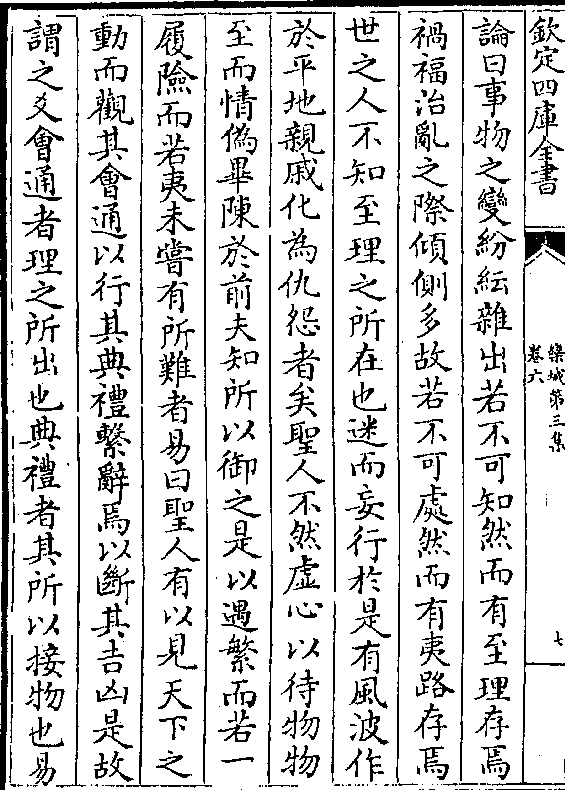 欽定四庫全書
欒城第三集
卷六
七
論曰事物之變紛紜雜出若不可知然而有至理存焉
禍福治亂之際傾側多故若不可處然而有夷路存焉
世之人不知至理之所在也迷而妄行於是有風波作
於平地親戚化為仇怨者矣聖人不然虛心以待物物
至而情偽畢陳於前夫知所以御之是以遇繁而若一
履險而若夷未嘗有所難者易曰聖人有以見天下之
動而觀其會通以行其典禮繫辭焉以斷其吉凶是故
謂之爻會通者理之所出也典禮者其所以接物也易